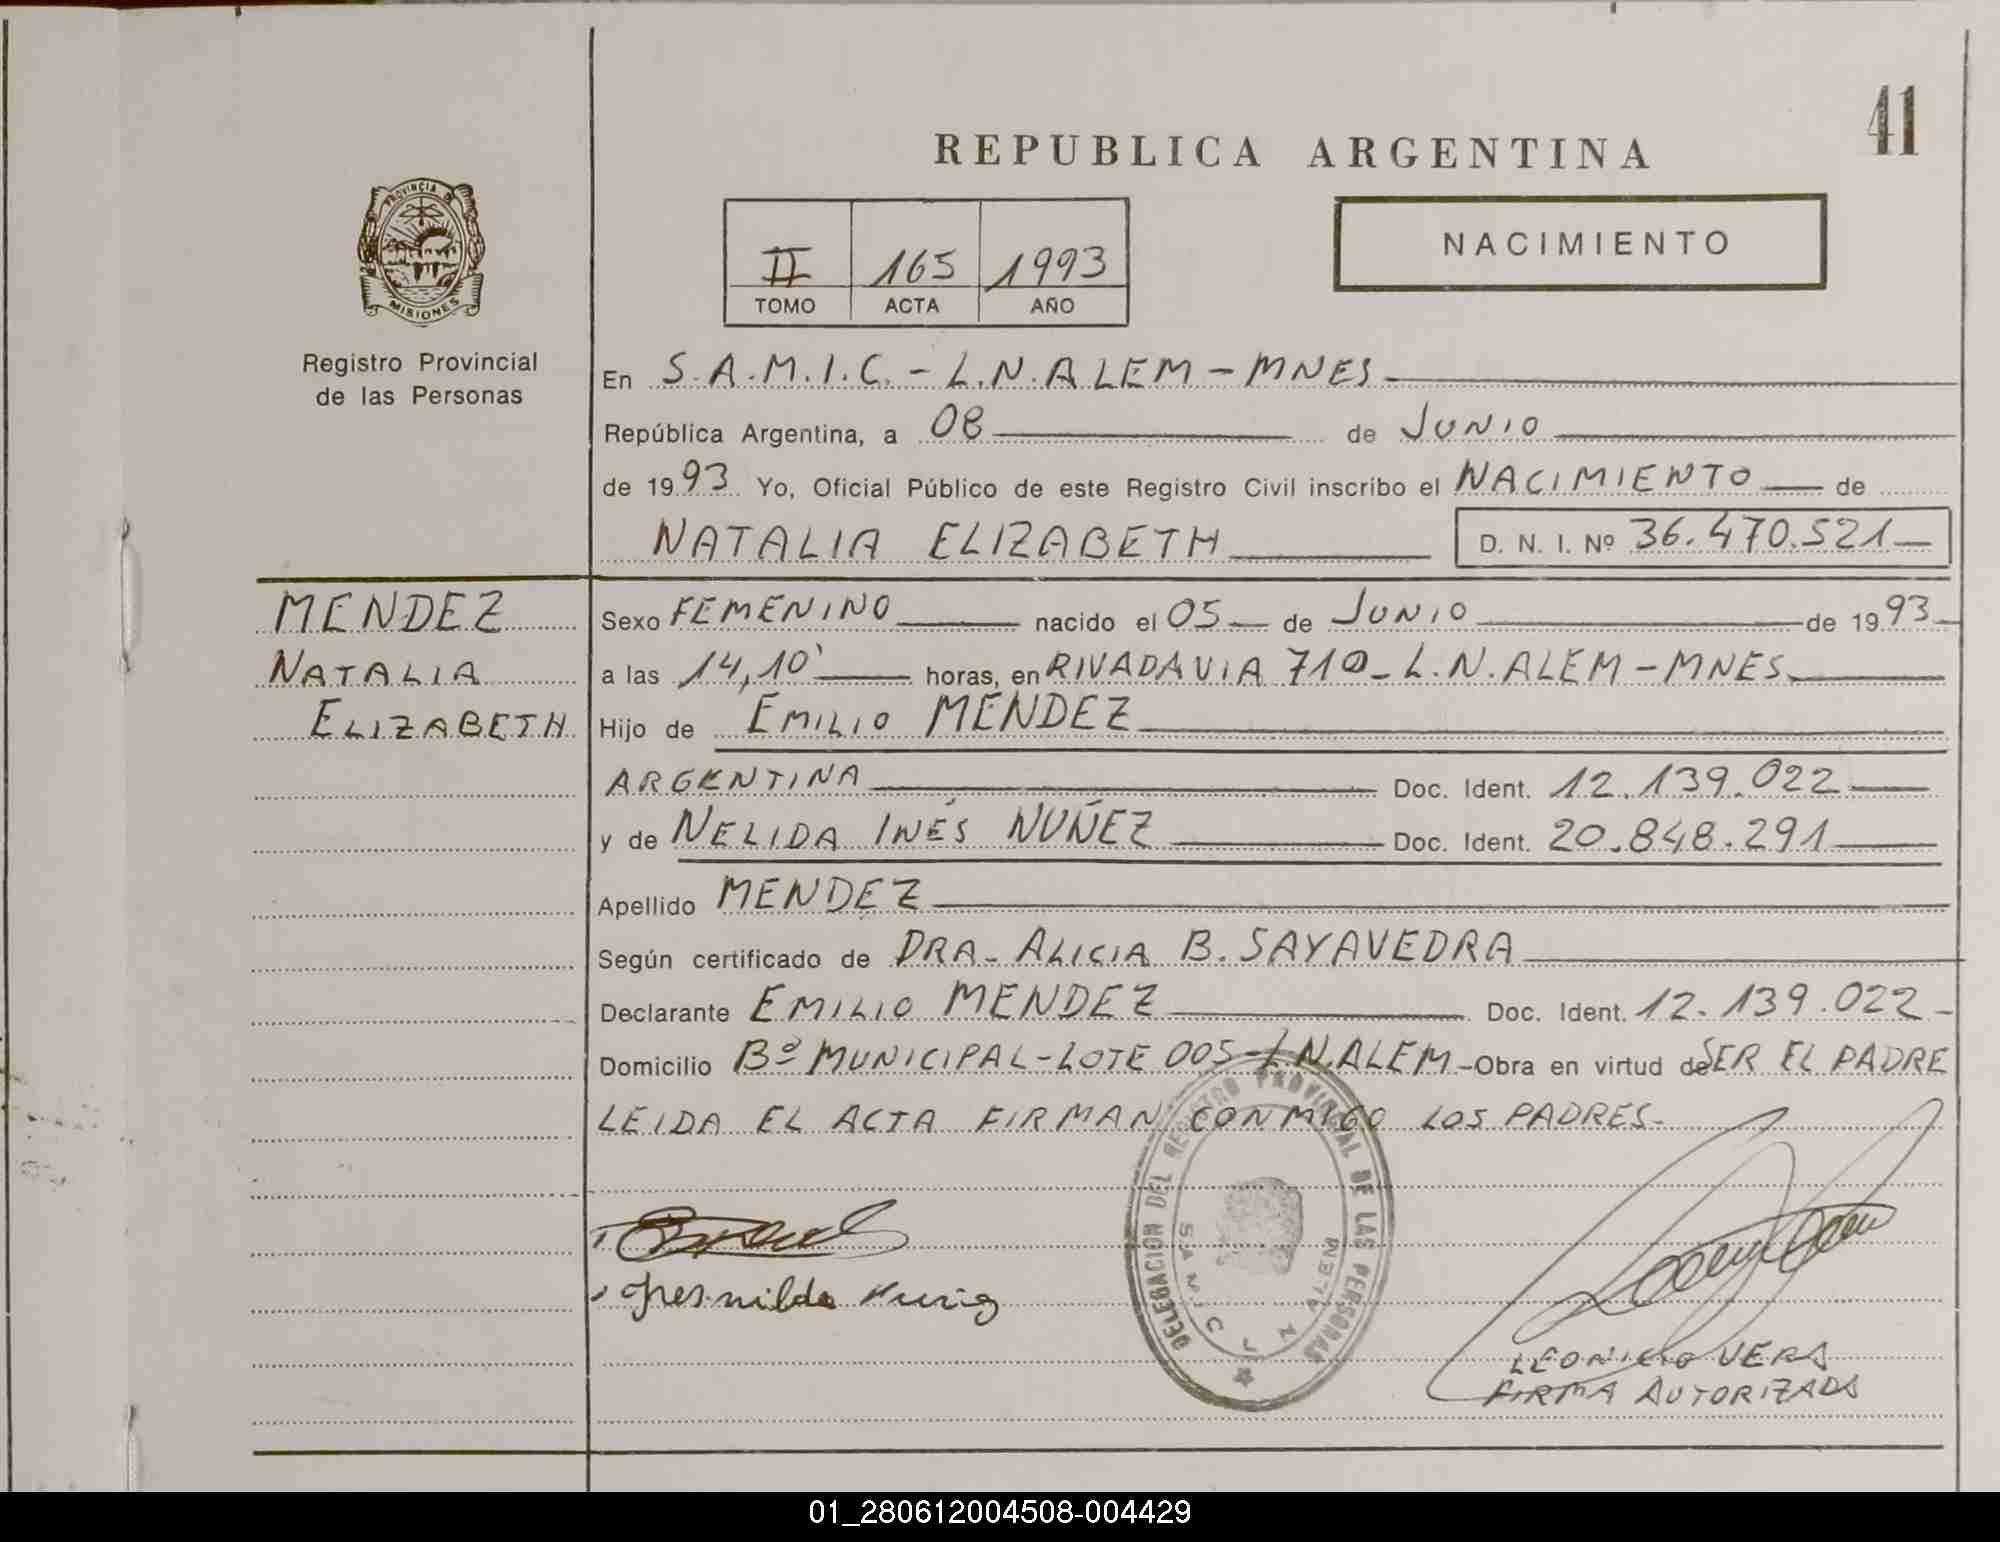 41
REPUBLICA ARGENTINA
PROVINCIA DE
MISIONES
Registro Provincial
de las Personas
II 165 1993
TOMO ACTA AÑO
NACIMIENTO
En S.A.M.I.C. - L.N.ALEM - MNES
República Argentina, a 08 de JUNIO
de 1993 Yo, Oficial Público de este Registro Civil inscribo el NACIMIENTO de
NATALIA ELIZABETH D. N. I. Nº 36.470.521
MENDEZ
NATALIA
ELIZABETH
Sexo FEMENINO nacido el 05 de JUNIO de 1993
a las 14,10' horas, en RIVADAVIA 710 - L.N.ALEM - MNES
Hijo de EMILIO MENDEZ
ARGENTINA Doc. Ident. 12.139.022
y de NELIDA INÉS NUÑEZ Doc. Ident. 20.848.291
Apellido MENDEZ
Según certificado de DRA. ALICIA B. SAYAVEDRA
Declarante EMILIO MENDEZ Doc. Ident. 12.139.022
Domicilio Bº MUNICIPAL - LOTE 005 - L.N.ALEM - Obra en virtud de SER EL PADRE
LEIDA EL ACTA FIRMAN CONMIGO LOS PADRES.
DELEGACION DEL REGISTRO PROVINCIAL DE LAS PERSONAS
L. N. ALEM
LEONICIO VERA
FIRMA AUTORIZADA
01_280612004508-004429